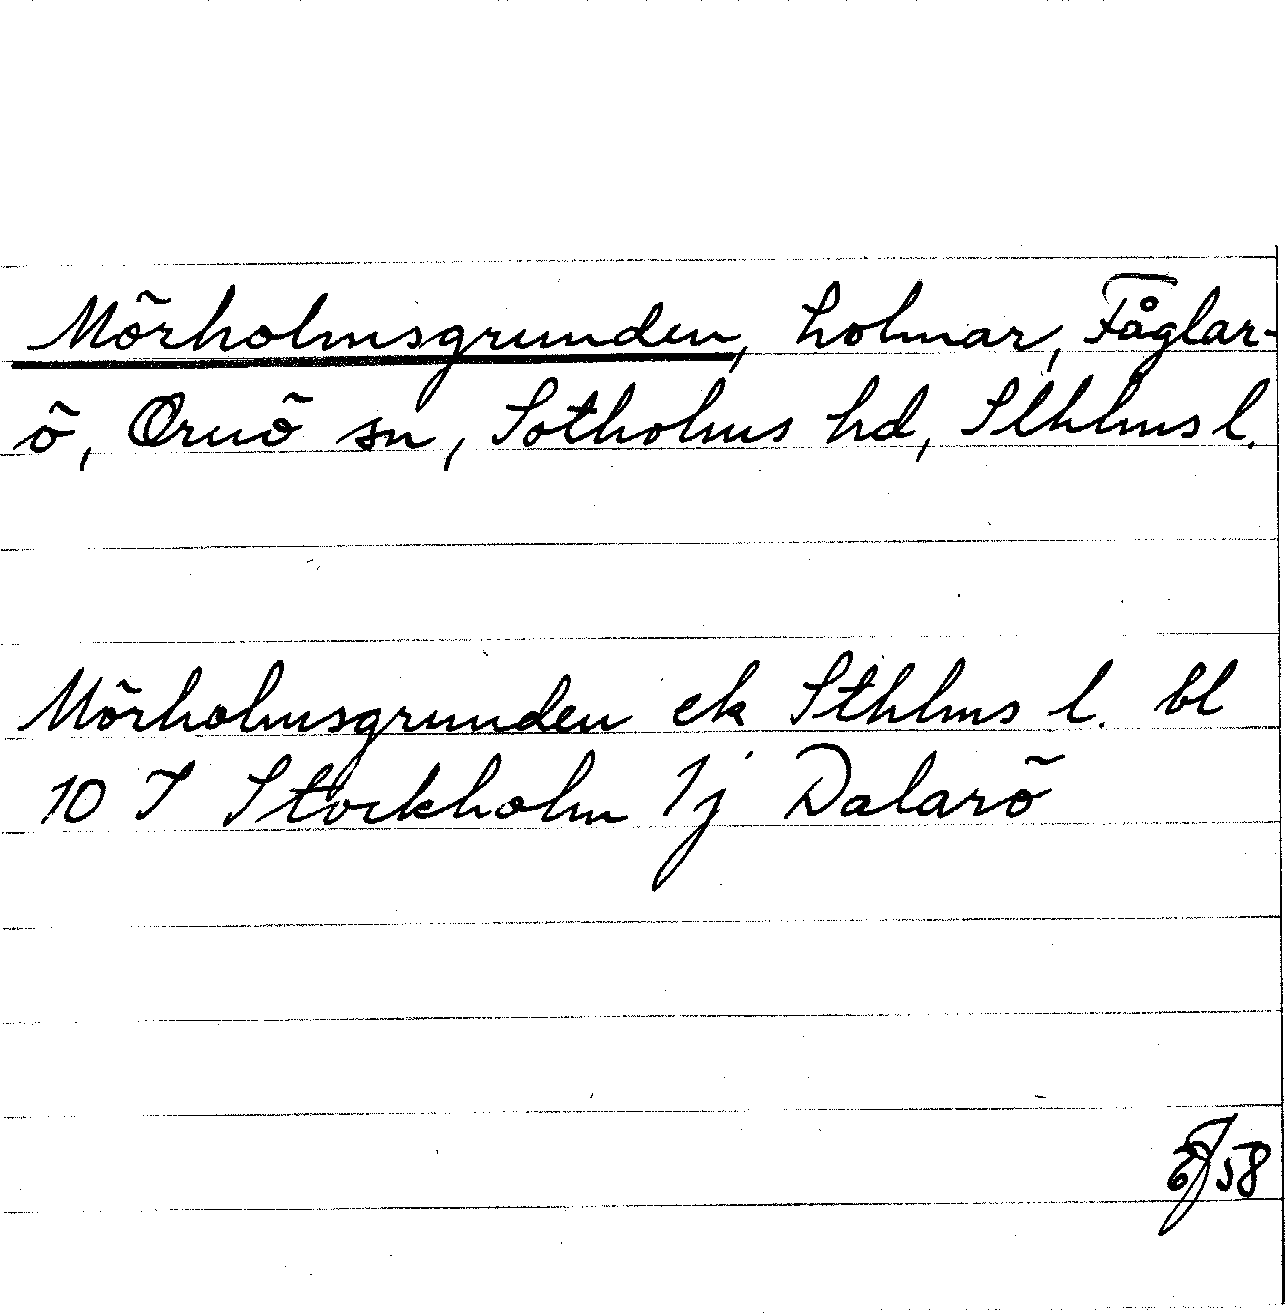 Mörholmsgrunden, holmar, Fåglar-
ö, Ornö sn, Sotholms hd, Sthlms l.
Mörholmsgrunden ek Sthlms l. bl
10 I Stockholm 1j Dalarö
58